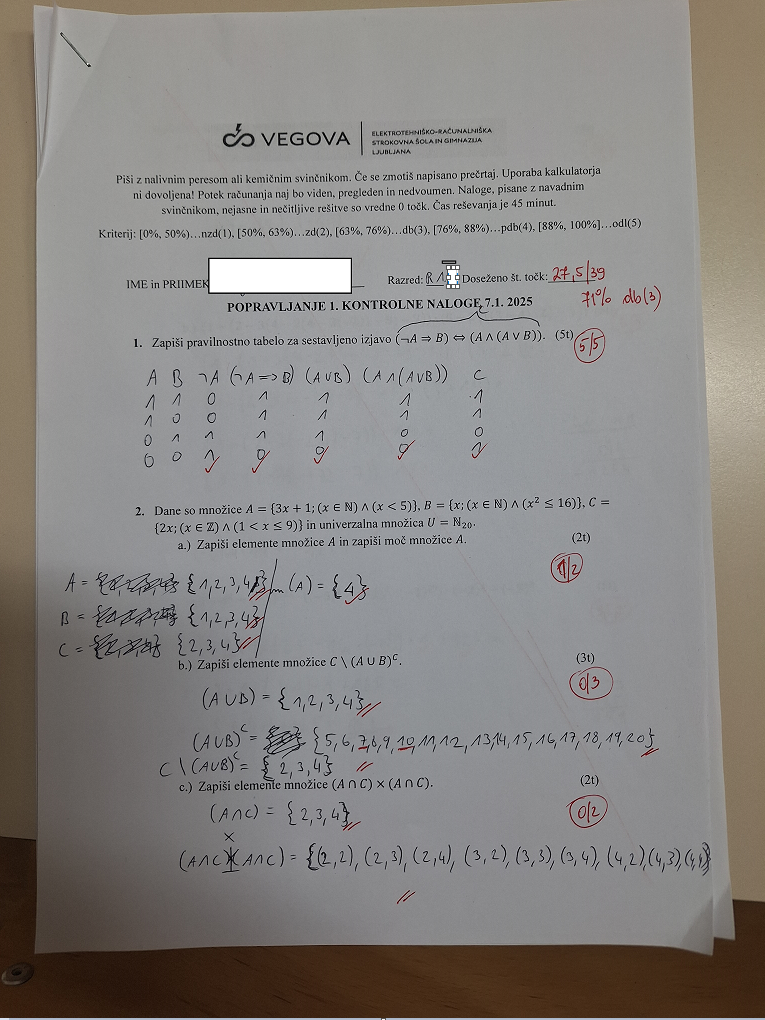 VEGOVA
ELEKTROTEHNIŠKO-RAČUNALNIŠKA
STROKOVNA ŠOLA IN GIMNAZIJA
LJUBLJANA
Piši z nalivnim peresom ali kemičnim svinčnikom. Če se zmotiš napisano prečrtaj. Uporaba kalkulatorja
ni dovoljena! Potek računanja naj bo viden, pregleden in nedvoumen. Naloge, pisane z navadnim
svinčnikom, nejasne in nečitljive rešitve so vredne 0 točk. Čas reševanja je 45 minut.
Kriterij: [0%, 50%)…nzd(1), [50%, 63%)…zd(2), [63%, 76%)…db(3), [76%, 88%)…pdb(4), [88%, 100%]…odl(5)
IME in PRIIMEK Razred: R 1. Doseženo št. točk: 27,5/39
71% db(3)
POPRAVLJANJE 1. KONTROLNE NALOGE, 7.1. 2025
1. Zapiši pravilnostno tabelo za sestavljeno izjavo (¬A ⇒ B) ⇔ (A ∧ (A ∨ B)). (5t)
5/5
A B ¬A (¬A => B) (A∪B) (A ∩ (A∪B)) C
1 1 0 1 1 1 1
1 0 0 1 1 1 1
0 1 1 1 1 0 0
0 0 1 0 0 0 1
2. Dane so množice A = {3x + 1; (x ∈ ℕ) ∧ (x < 5)}, B = {x; (x ∈ ℕ) ∧ (x² ≤ 16)}, C =
{2x; (x ∈ ℤ) ∧ (1 < x ≤ 9)} in univerzalna množica U = ℕ₂₀.
a.) Zapiši elemente množice A in zapiši moč množice A. (2t)
1/2
A = {1,2,3,4} m(A) = {4}
B = {1,2,3,4}
C = {2,3,4}
b.) Zapiši elemente množice C \ (A ∪ B)ᶜ. (3t)
0/3
(A∪B) = {1,2,3,4}
(A∪B)ᶜ = {5,6,7,8,9,10,11,12,13,14,15,16,17,18,19,20}
C \ (A∪B)ᶜ = {2,3,4}
c.) Zapiši elemente množice (A ∩ C) × (A ∩ C). (2t)
0/2
(A∩C) = {2,3,4}
×
(A∩C) (A∩C) = {(2,2), (2,3), (2,4), (3,2), (3,3), (3,4), (4,2), (4,3), (4,4)}